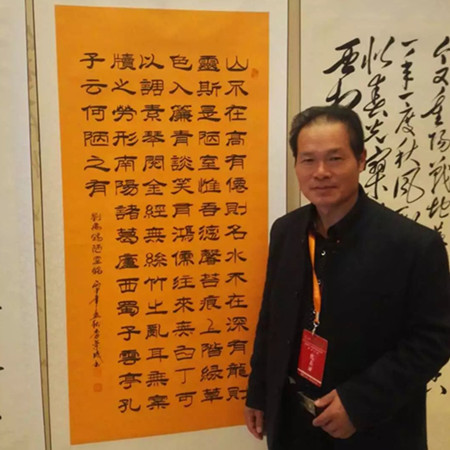 今又重陽戰地
一年一度秋風
似春光寥
山不在高有僊則名水不在深有龍則
靈斯是陋室惟吾德馨苔痕上階綠草
色入簾青談笑有鴻儒往來無白丁可
以調素琴閱金經無絲竹之亂耳無案
牘之勞形南陽諸葛廬西蜀子雲亭孔
子云何陋之有
劉禹錫陋室銘